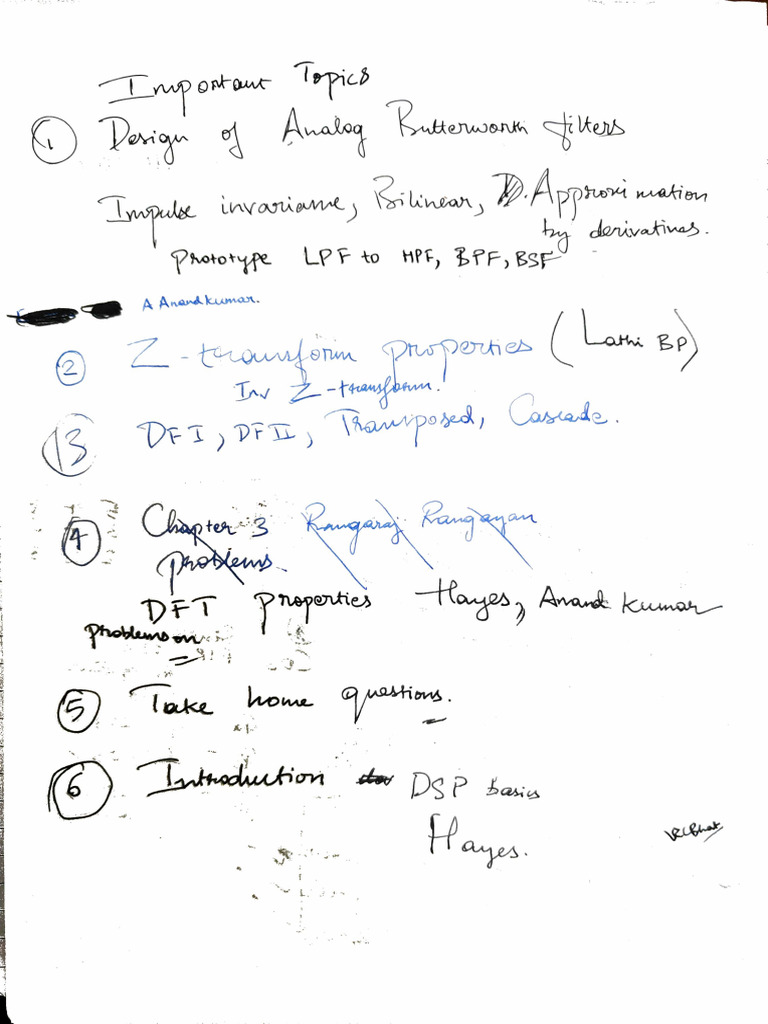 Important Topics
1 Design of Analog Butterworth filters
Impulse invariance, Bilinear, Approximation
by derivatives.
Prototype LPF to HPF, BPF, BSF
A Anandkumar.
2 Z-transform properties (Lathi BP)
Inv Z-transform.
3 DFI, DFII, Transposed, Cascade.
4 Chapter 3 Rangaraj Rangayan
problems.
DFT properties Hayes, Anand Kumar
problems on
5 Take home questions.
6 Introduction DSP basics
Hayes.